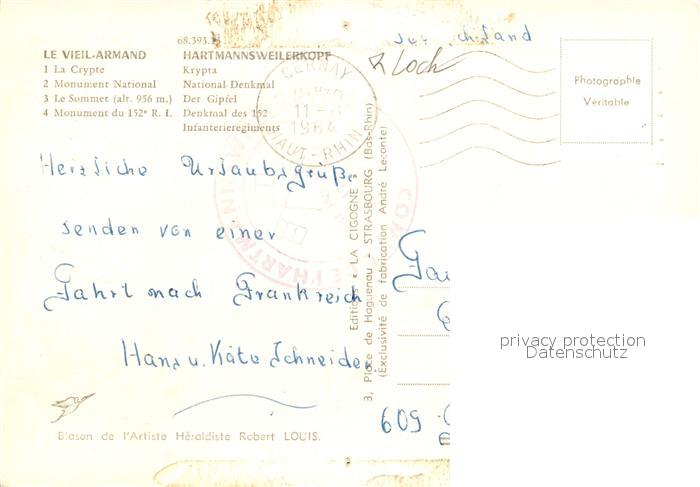 68.393.
LE VIEIL-ARMAND HARTMANNSWEILERKOPF
1 La Crypte Krypta
2 Monument National National-Denkmal
3 Le Sommet (alt. 956 m.) Der Gipfel
4 Monument du 152e R. I. Denkmal des 152
Infanterieregiments
CERNAY
11
1964
HAUT-RHIN
Photographie
Véritable
Herzliche Urlaubsgrüße
senden von einer
Fahrt nach Frankreich
Hans u. Käte Schneider.
Editions LA CIGOGNE
3, Place de Haguenau - STRASBOURG (Bas-Rhin)
(Exclusivité de fabrication André Leconte)
609
privacy protection
Datenschutz
Blason de l'Artiste Héraldiste Robert LOUIS.